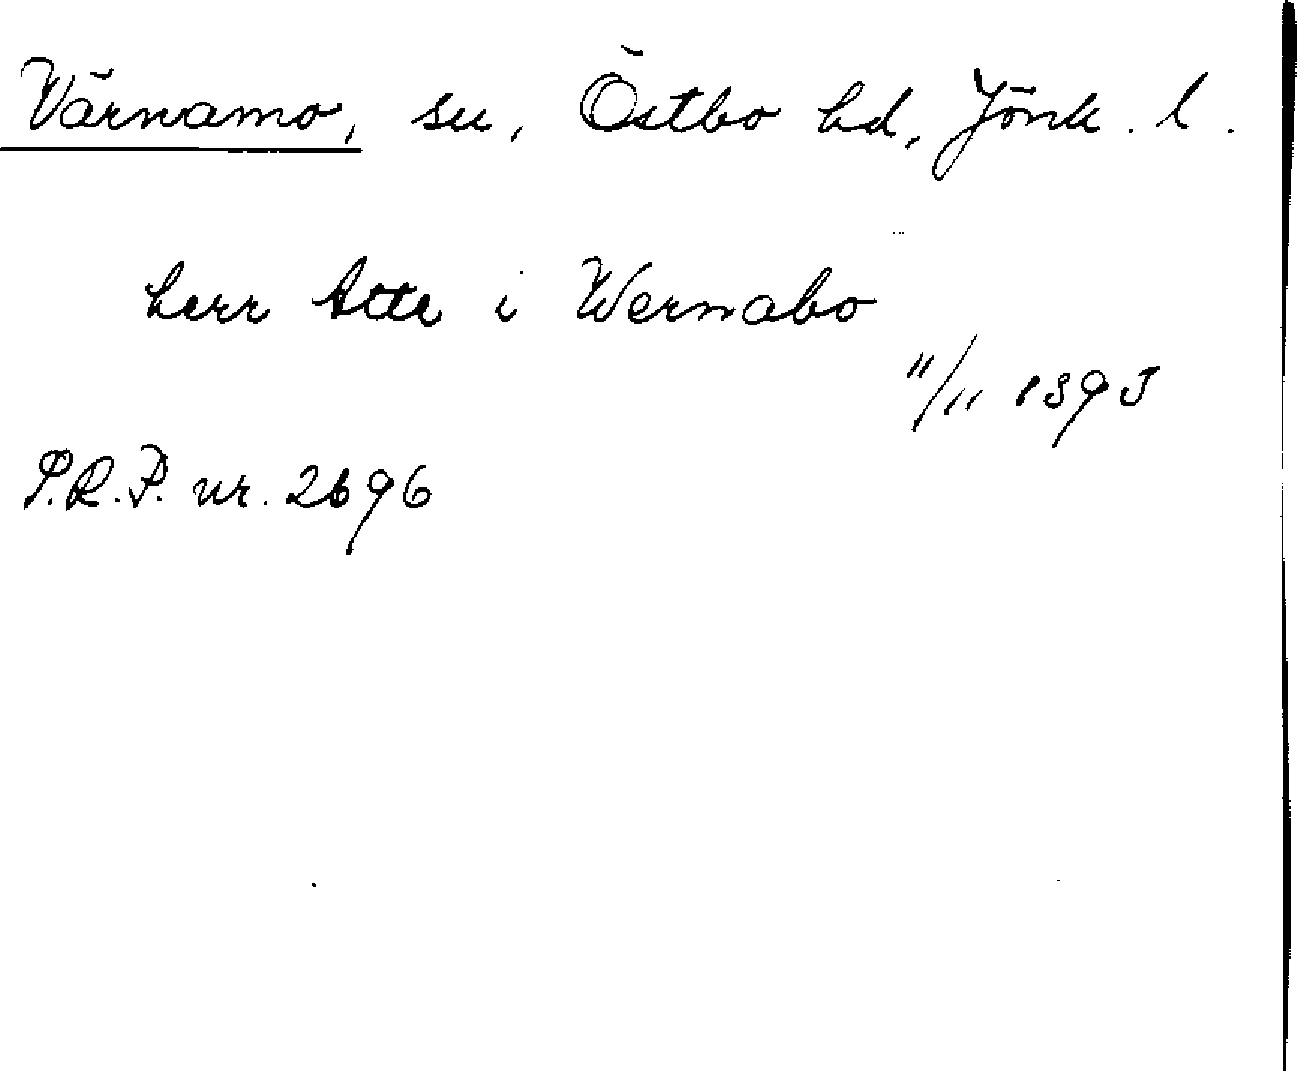 Värnamo, sn, Östbo hd, Jönk. l.
herr Atte i Wernabo
11/11 1393
P.R.P. nr. 2696